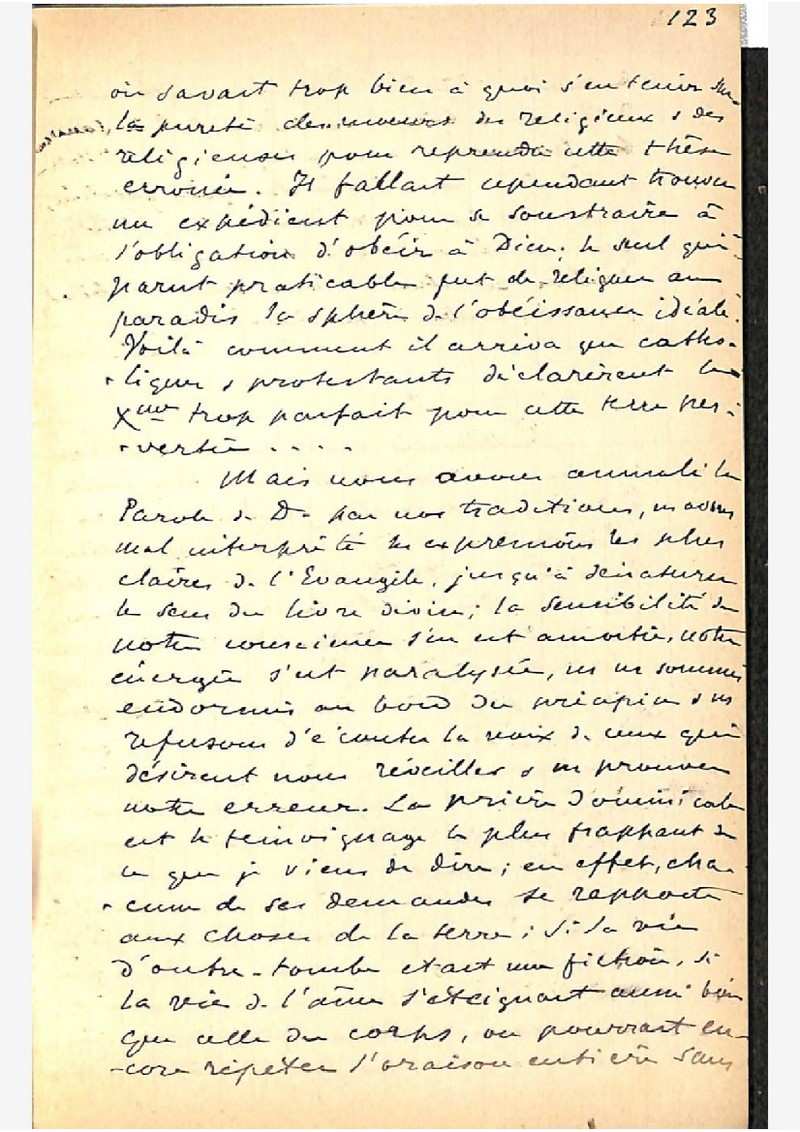 123
on savait trop bien à quoi s'en tenir sur
la pureté des moeurs des religieux & des
religieuses pour reprendre cette thèse
erronée. Il fallait cependant trouver
un expédient pour se soustraire à
l'obligation d'obéir à Dieu; le seul qui
parut praticable fut de reléguer au
paradis la sphère de l'obéissance idéale.
Voilà comment il arriva que catho-
-liques & protestants déclarèrent le
Xme trop parfait pour cette terre per-
-vertie . . . .
Mais nous avons annulé la
Parole de D. par nos traditions, ns avons
mal interprété les expressions les plus
claires de l'Evangile, jusqu'à dénaturer
le sens du livre divin; la sensibilité de
notre conscience s'en est amortie, notre
énergie s'est paralysée, ns ns sommes
endormis au bord du précipice & ns
refusons d'écouter la voix de ceux qui
désirent nous réveiller & ns prouver
notre erreur. La prière dominicale
est le témoignage le plus frappant de
ce que je viens de dire; en effet, cha-
-cune de ses demandes se rapporte
aux choses de la terre; si la vie
d'outre-tombe était une fiction, si
la vie de l'âme s'éteignait aussi bien
que celle du corps, on pourrait en-
-core répéter l'oraison entière sans